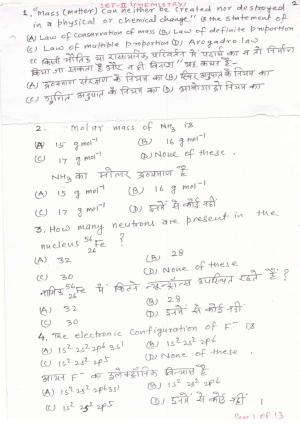 SET-II (CHEMISTRY)
2
1. "Mass (matter) can neither be created nor destroyed
in a physical or chemical change." is the statement of
(A) Law of conservation of mass (B) Law of definite proportion
(C) Law of multiple proportion (D) Avogadro law
"किसी भौतिक या रासायनिक परिवर्तन में पदार्थ का न तो निर्माण
किया जा सकता है और न ही विनाश" यह कथन है-
(A) द्रव्यमान संरक्षण के नियम का (B) स्थिर अनुपात के नियम का
(C) गुणित अनुपात के नियम का (D) आवोगाद्रो नियम का
2. Molar mass of NH₃ is
(A) 15 g mol⁻¹ (B) 16 g mol⁻¹
(C) 17 g mol⁻¹ (D) None of these.
NH₃ का मोलर द्रव्यमान है
(A) 15 g mol⁻¹ (B) 16 g mol⁻¹
(C) 17 g mol⁻¹ (D) इनमें से कोई नहीं
3. How many neutrons are present in the
nucleus ⁵⁶₂₆Fe ?
(A) 32 (B) 28
(C) 30 (D) None of these
नाभिक ⁵⁶₂₆Fe में कितने न्यूट्रॉन्स उपस्थित रहते हैं?
(A) 32 (B) 28
(C) 30 (D) इनमें से कोई नहीं
4. The electronic configuration of F⁻ is
(A) 1s² 2s² 2p⁶ 3s¹ (B) 1s² 2s² 2p⁶
(C) 1s² 2s² 2p⁵ (D) None of these.
आयन F⁻ का इलेक्ट्रॉनिक विन्यास है
(A) 1s² 2s² 2p⁶ 3s¹ (B) 1s² 2s² 2p⁶
(C) 1s² 2s² 2p⁵ (D) इनमें से कोई नहीं
Page 1 of 13